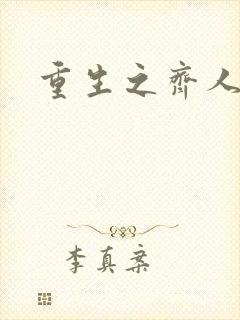 重生之齐人
李真案